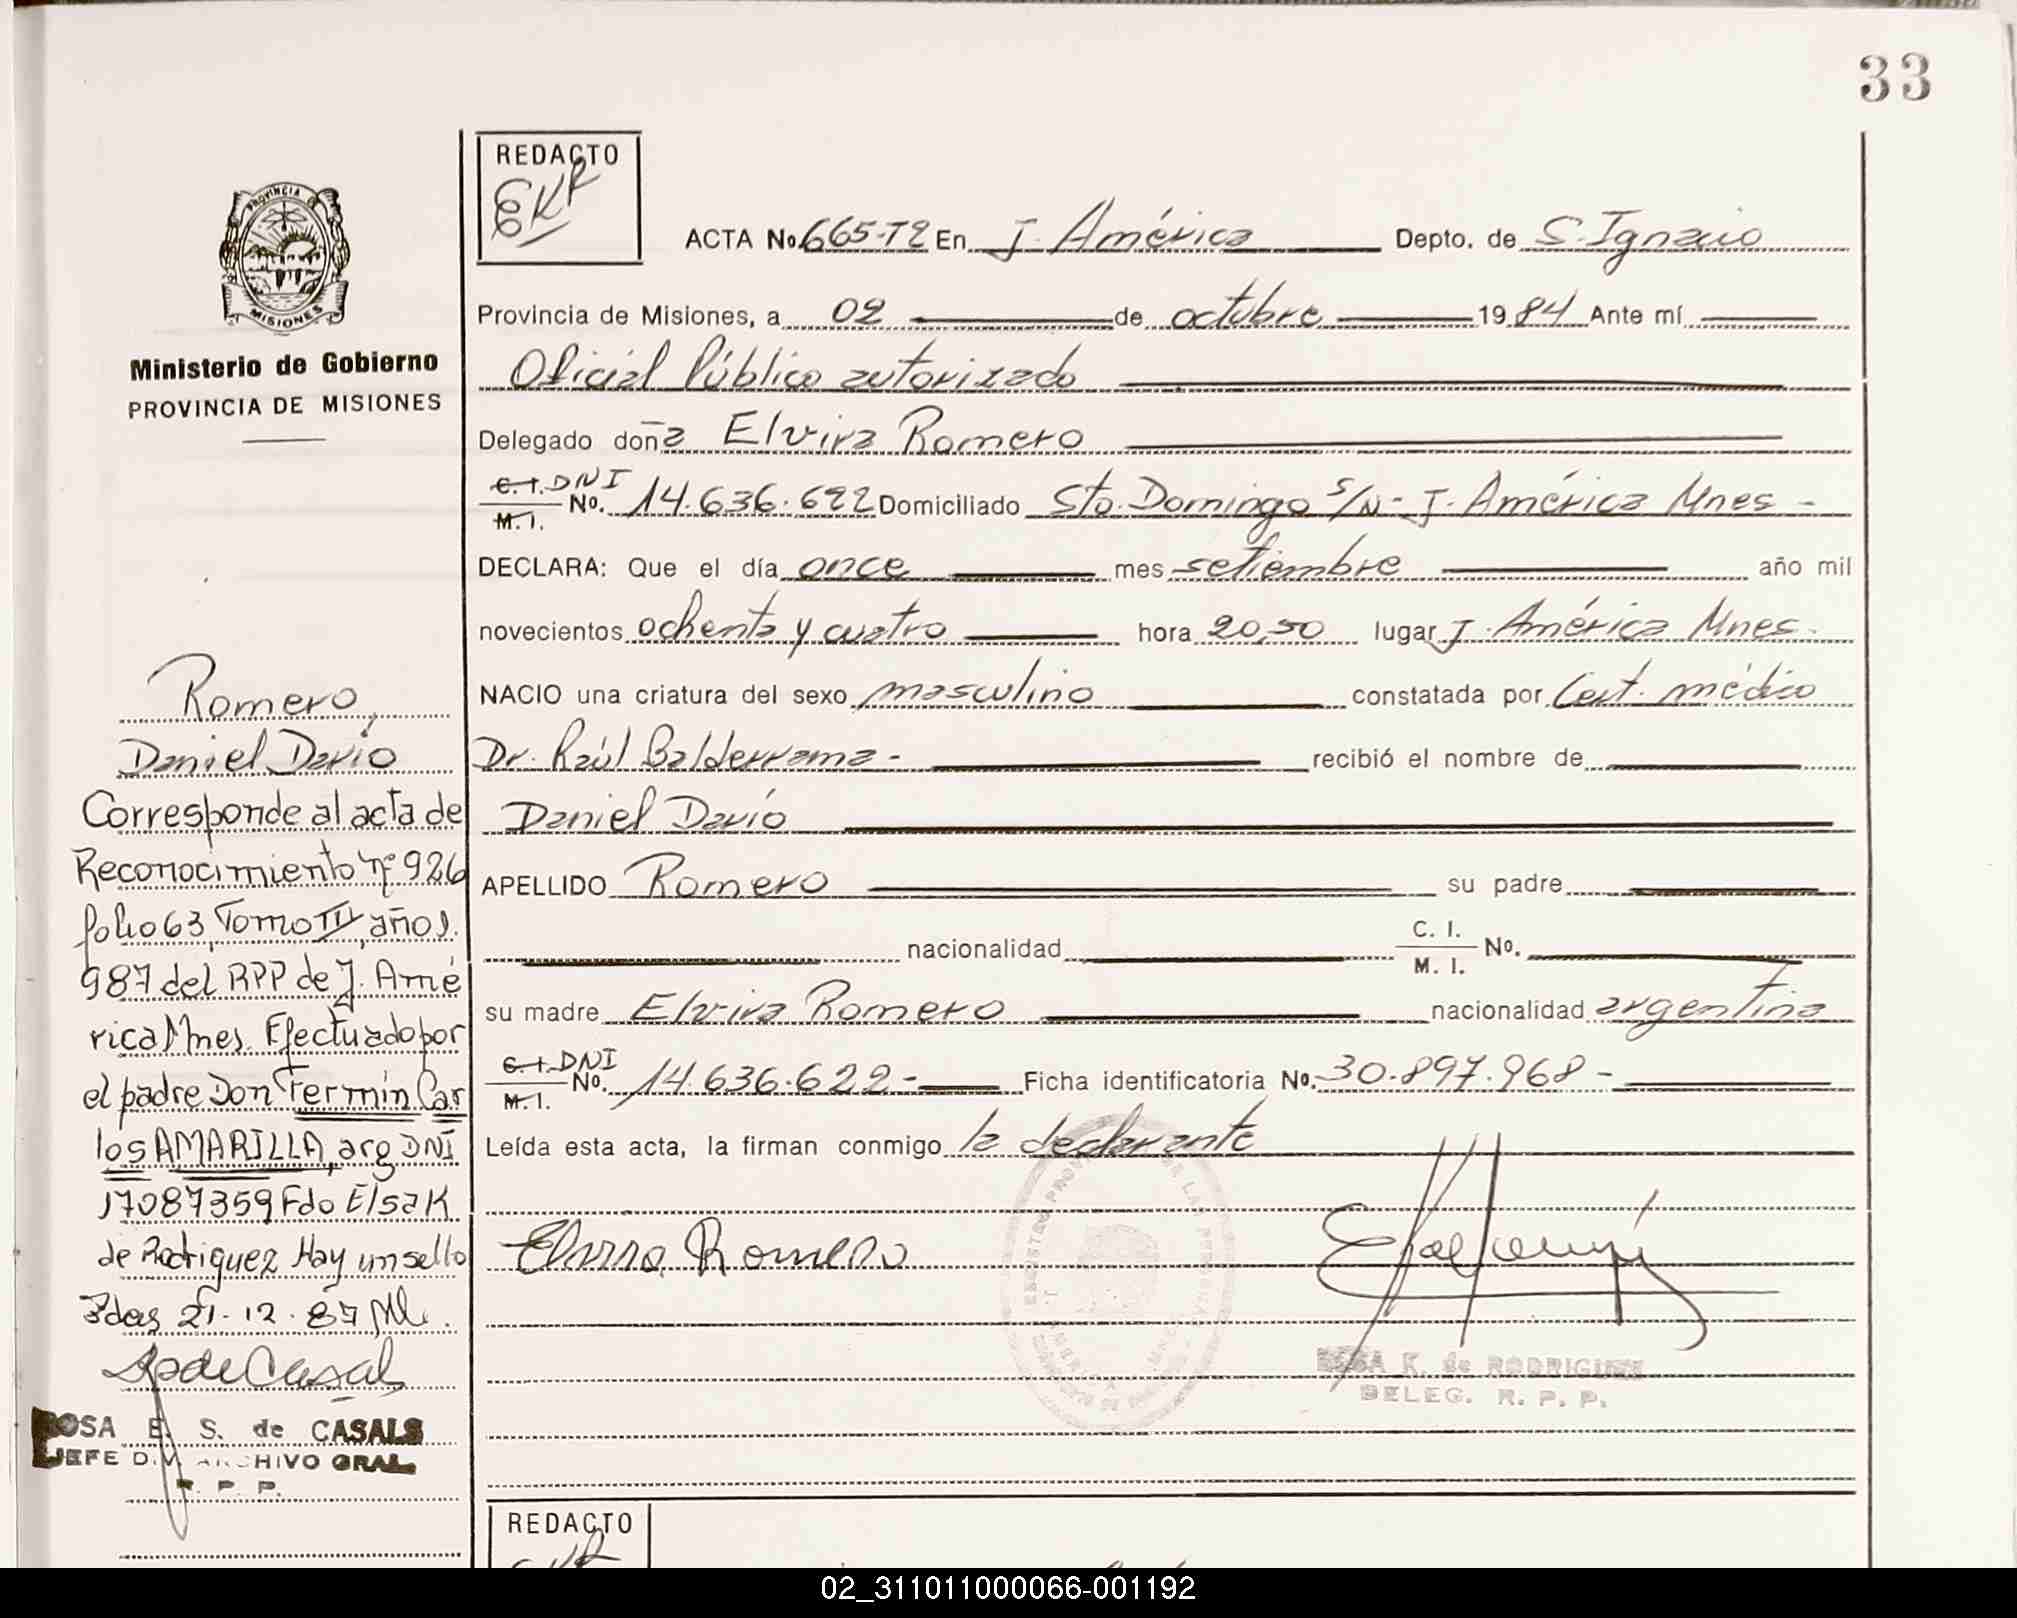 33
PROVINCIA DE
MISIONES
Ministerio de Gobierno
PROVINCIA DE MISIONES
REDACTO
EKR
ACTA No. 665-T2 En J. América Depto. de S. Ignacio
Provincia de Misiones, a 02 de octubre 1984 Ante mí
Oficial Público autorizado
Delegado doña Elvira Romero
C.I. DNI
M.I. No. 14.636.622 Domiciliado Sto. Domingo s/N - J. América Mnes -
DECLARA: Que el día once mes setiembre año mil
novecientos ochenta y cuatro hora 20,50 lugar J. América Mnes.
NACIO una criatura del sexo masculino constatada por Cert. médico
Dr. Raúl Balderrama - recibió el nombre de
Daniel Darío
APELLIDO Romero su padre
nacionalidad C. I.
M. I. No.
su madre Elvira Romero nacionalidad argentina
C.I. DNI
M.I. No. 14.636.622- Ficha identificatoria No. 30.897.968-
Leída esta acta, la firman conmigo la declarante
Elvira Romero
K. de RODRIGUEZ
DELEG. R. P. P.
Romero,
Daniel Darío
Corresponde al acta de
Reconocimiento nº 926
folio 63, Tomo III, año 1.
987 del RPP de J. Amé
rica Mnes. Efectuado por
el padre Don Fermín Car
los AMARILLA, arg DNI
17087359 Fdo Elsa K
de Rodriguez Hay un sello
Pdas 21-12-87
R de Casals
ROSA E. S. de CASALS
JEFE DIV. ARCHIVO GRAL.
R. P. P.
REDACTO
EKR
02_311011000066-001192